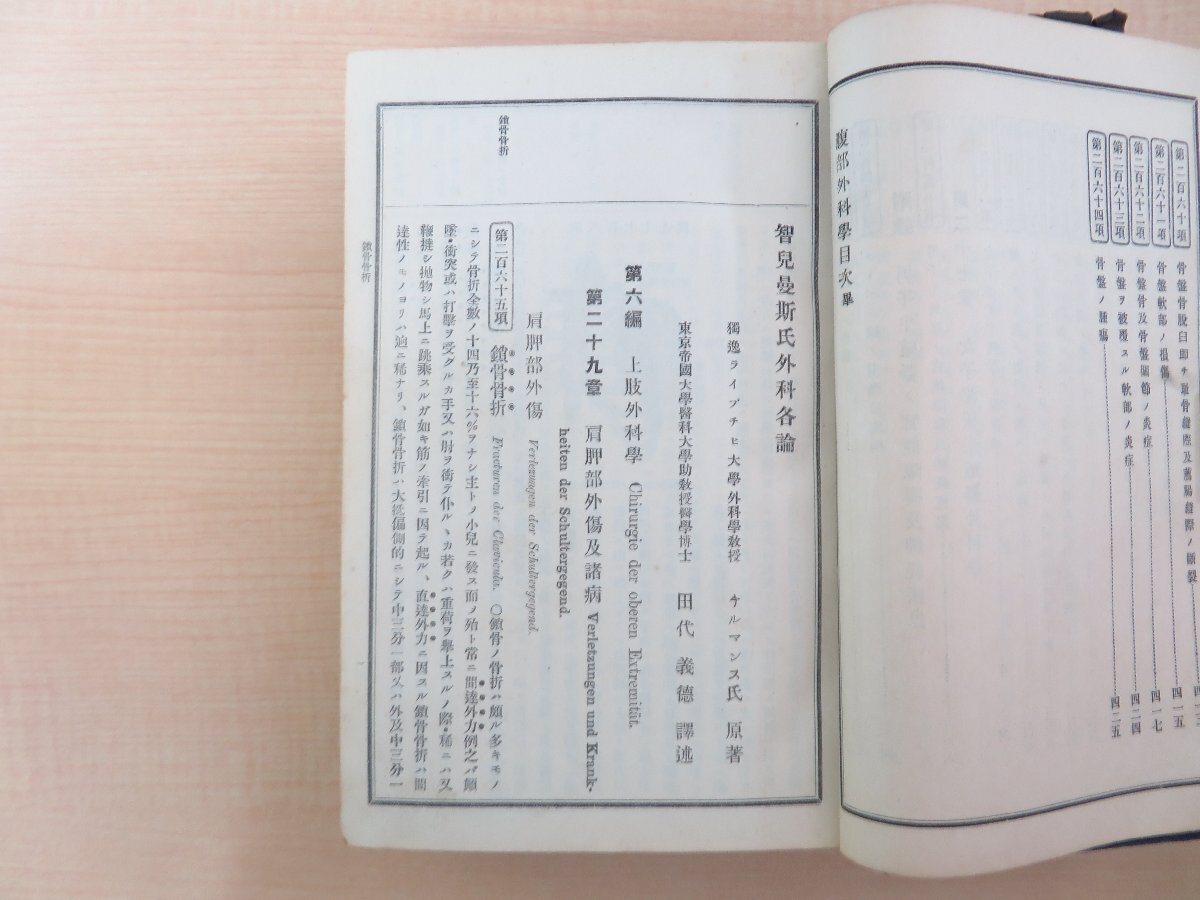 第二百六十項 骨盤骨脫臼即チ耻骨縫際及薦腸縫際ノ
第二百六十一項 骨盤軟部ノ損傷 四一五
第二百六十二項 骨盤骨及骨盤關節ノ炎症 四一七
第二百六十三項 骨盤ヲ被覆スル軟部ノ炎症 四二四
第二百六十四項 骨盤ノ腫瘍 四二五
腹部外科學目次畢
智兒曼斯氏外科各論
獨逸ライプチヒ大學外科學敎授 チルマンス氏 原著
東京帝國大學醫科大學助敎授醫學博士 田代義德 譯述
第六編 上肢外科學 Chirurgie der oberen Extremität.
第二十九章 肩胛部外傷及諸病 Verletzungen und Krank-
heiten der Schultergegend.
肩胛部外傷 Verletzungen der Schultergegend.
鎖骨骨折
第二百六十五項 鎖骨骨折 Fracturen der Clavicula. ○鎖骨ノ骨折ハ頗ル多キモノ
ニシテ骨折全數ノ十四乃至十六%ヲナシ主トノ小兒ニ發ス而ノ殆ト常ニ間達外力例之バ顚
墜・衝突或ハ打擊ヲ受グルカ手又ハ肘ヲ衝テ仆ルヽカ若クハ重荷ヲ擧上スルノ際・稀ニハ又
鞭撻シ抛物シ馬上ニ跳乘スルガ如キ筋ノ牽引ニ因テ起ル、直達外力ニ因スル鎖骨骨折ハ間
達性ノモノヨリハ逈ニ稀ナリ、鎖骨骨折ハ大抵偏側的ニシテ中三分一部又ハ外及中三分一
鎖骨骨折